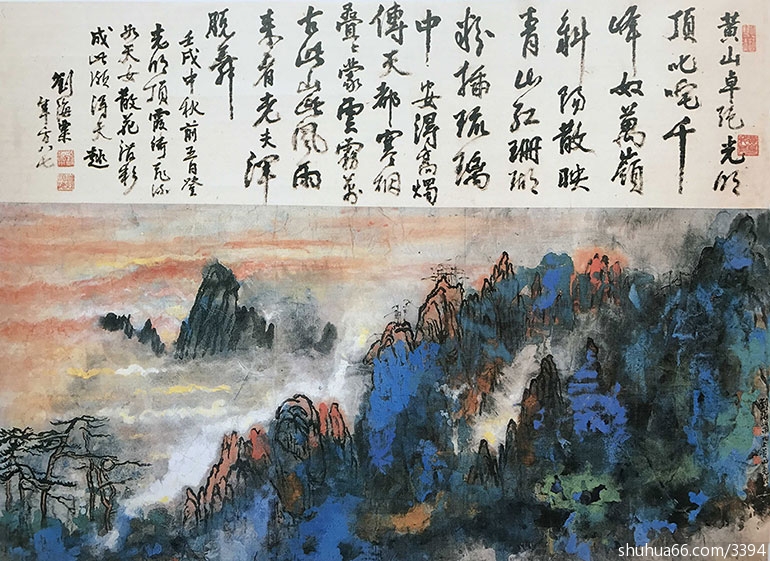 黃山卓绝光明
頂叱咤千
峰奴萬嶺
斜陽散映
青山红珊瑚
粉插琉璃
中安得高燭
傳天都寒烟
叠叠蒙雲霧萬
古此山此風雨
来者老夫渾
脱舞
壬戌中秋前五日登
光明頂霞绮飛流
如天女散花潑彩
成此頗得天趣
劉海粟
年方八七
shuhua66.com/3394